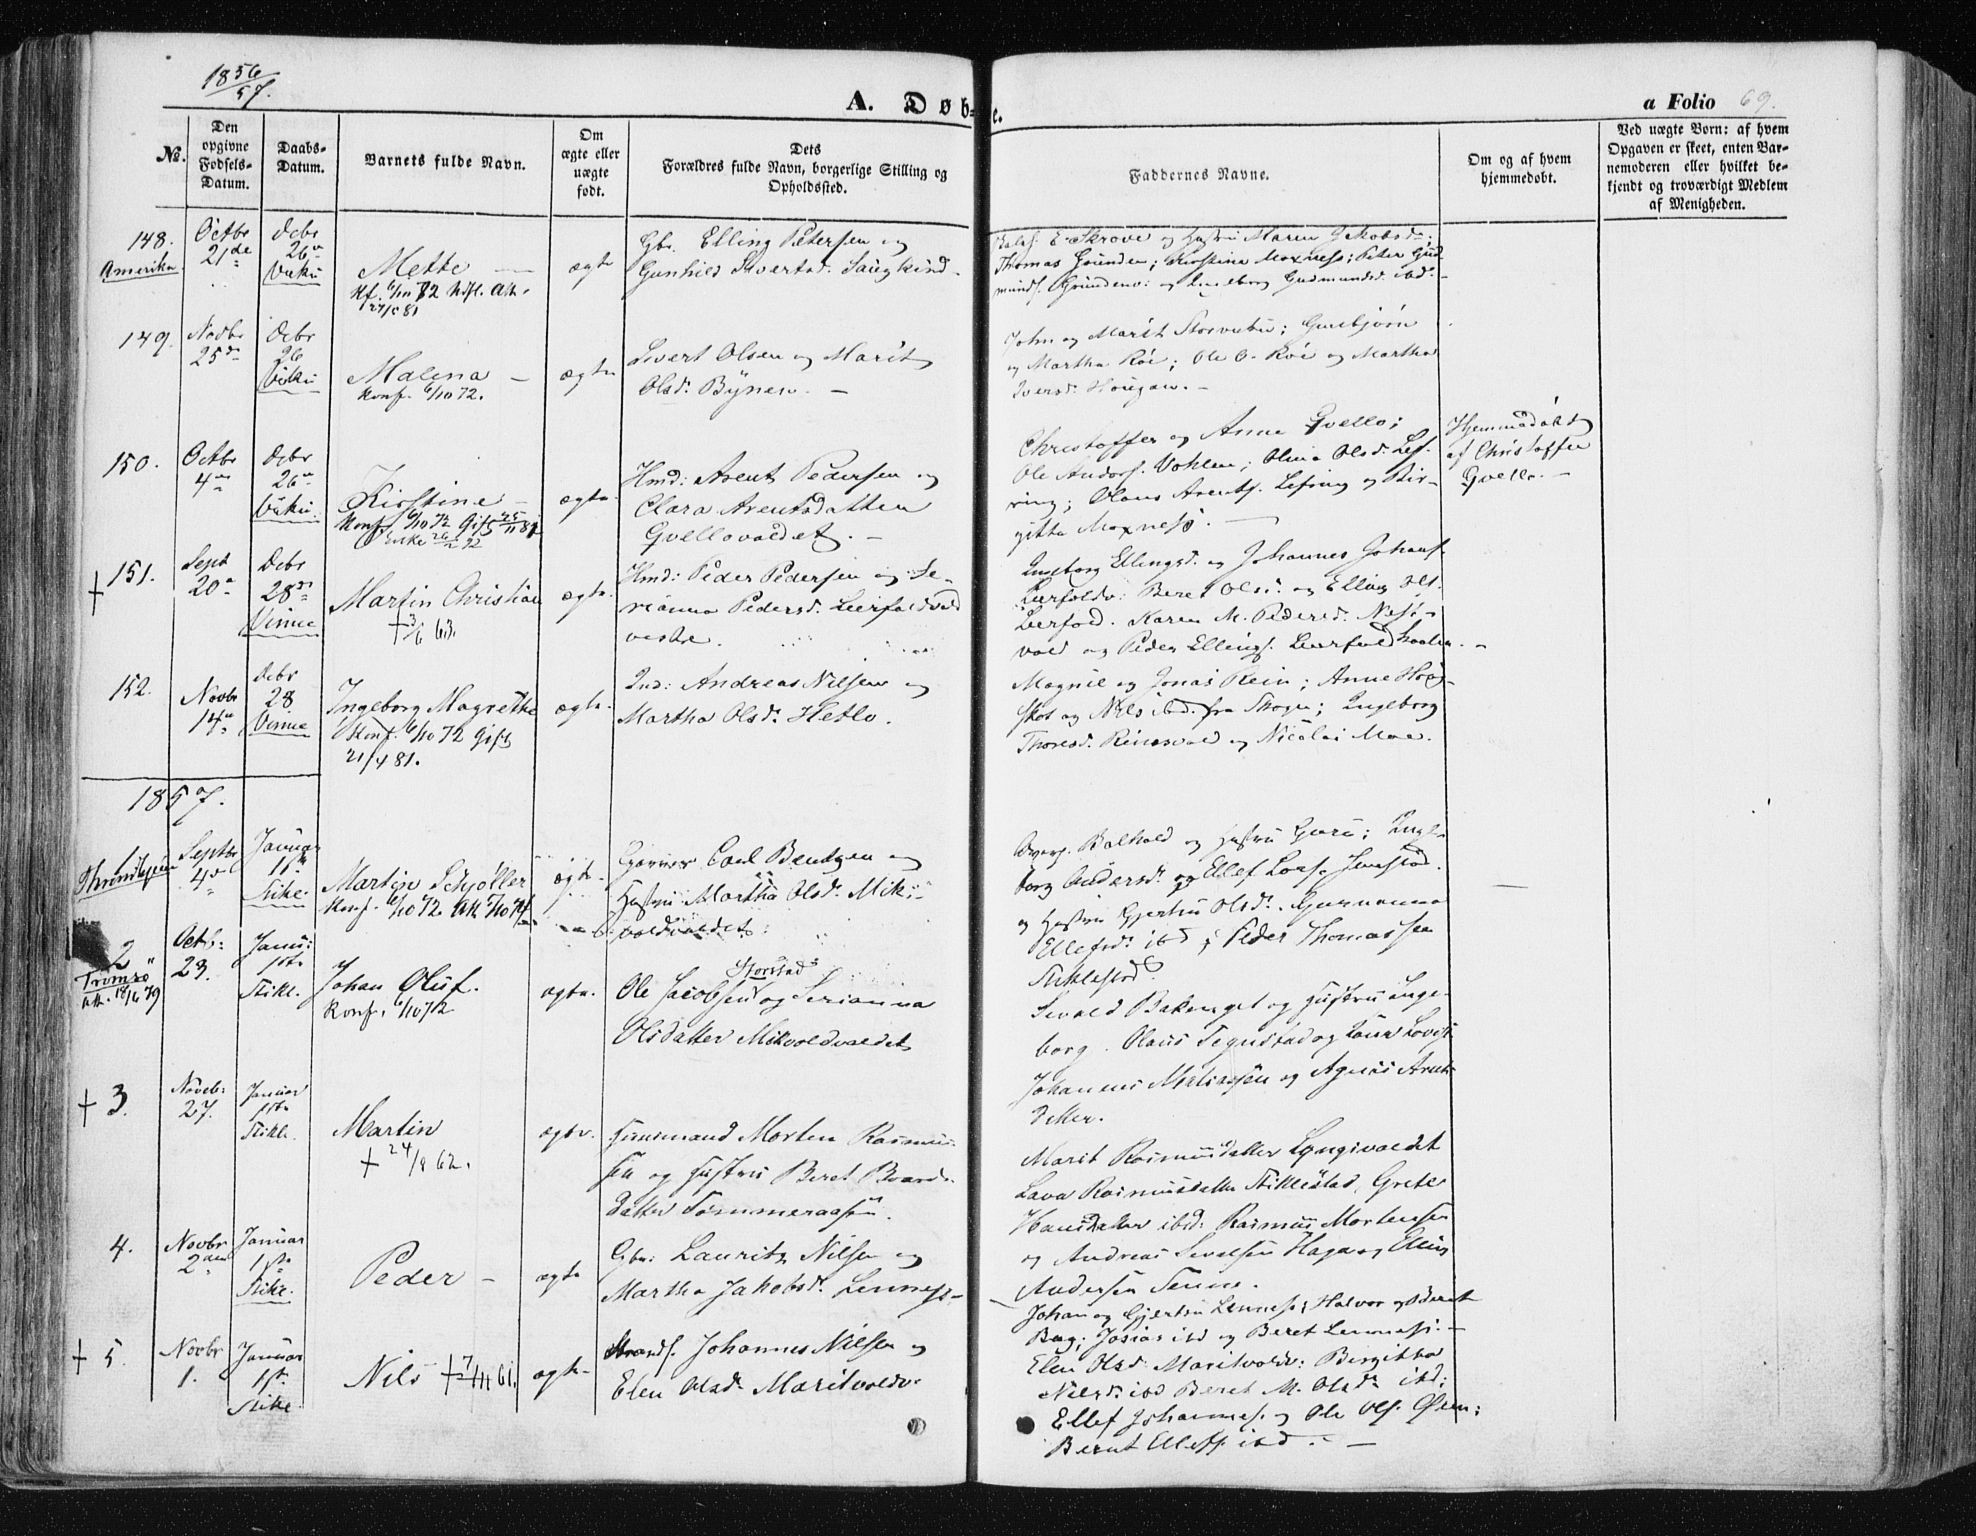 1856/57.
A. Døbte.
a Folio 69.
No.
Den opgivne Fødsels-Datum.
Daabs-Datum.
Barnets fulde Navn.
Om ægte eller uægte født.
Dets Forældres fulde Navn, borgerlige Stilling og Opholdssted.
Faddernes Navne.
Om og af hvem hjemmedøbt.
Ved uægte Børn: af hvem Opgaven er skeet, enten Barnemoderen eller hvilket bekjendt og troværdigt Medlem af Menigheden.
148.
Amerika
Octbr 21de
Debr 26
Vuku
Mette
6/10 72
ægte
Gbr. Elling Petersen og
Gunhild Sivertsd.
E. Skrove og Hustru Maren Jakobsd.
Thomas Grunden; Kirstine Moxness; Peter Gud-
munds. Grunden og Ingeborg Gudmundsd. ibd.
149.
Novbr 25
Debr 26
Vuku
Malena
Konf. 6/10 72.
ægte
Sivert Olsen og Marit
Olsd. Bÿnesv. —
John og Marit Storvuku;
og Martha Röe; Ole O. Röe og Martha
Iversd. Hougan. —
150.
Octbr 4
Debr 26
Vuku.
Kirstine
Konf. 6/10 72 Gift 25/11 81
Enke 26/2 92
ægte
Hmd: Arent Pedersen og
Clara Arentsdatter
Qvellovaldet. —
Christoffer og Anne Qvello;
Ole Anders. Vohlen; Olina Olsd. Lef-
ring; Olaus Arents. Lefring og Bir-
gitta Moxness. —
Hjemmedøbt
af Christoffer
Qvello. —
† 151.
Sept 20
Debr 28
Vinne
Martin Christian
† 3/6 63.
ægte
Hmd: Peder Pedersen og Se-
rianna Pedersd. Leerfaldvald
vestre.
Ingeborg Ellingsd. og Johannes Johans.
Leerfaldv: Beret Olsd. og Elling Ols.
Leerfald. Karen M. Pedersd. Ness-
vald og Peder Ellings. Leerfald
152.
Novbr 14
Debr 28
Vinne
Ingeborg Magrethe
Konf. 6/10 72 Gift
21/4 81.
ægte
Ind: Andreas Nilsen og
Martha Olsd. Hetlo.
Magnil og Jonas Rein; Anne
og Nils ibd. fra Skogn; Ingeborg
Thoresd. Rinsvald og Nicolai Moe.
1857.
1
Septbr 4
Januar 1ste
Stikl.
Martin Schjøller
Konf. 6/10 72
ægte
Carl Bentzen og
Hustru Martha Olsd. Mik-
voldvaldet.
Balhald og Hustru Guru; Inge-
borg Andersd. og Ellef
og Hustru Gjertru Olsd.
Ellefsd. ibd; Peder Thomassen
Stiklestad
2
Tromsø
Att. 18/6 79
Octb: 23.
Janu: 1ste
Stikl.
Johan Oluf.
Konf. 6/10 72
ægte.
Ole Jacobsen Storstad og Serianna
Olsdatter Mikvoldvaldet
Sivald Bakenget og Hustru Inge-
borg. Olaus Tegnstad og
Johannes Mathiassen og Agnes Arnts
datter.
† 3.
Noveb: 27.
Januar 1ste
Stikl.
Martin
† 24/8 62.
ægte.
Huusmand Morten Rasmus-
sen og Hustru Beret Baards-
datter Tømmeraasen.
Marit Rasmusdatter Lyngsvaldet
Lava Rasmusdatter Stiklestad, Grete
Hansdatter ibd: Rasmus Mortensen
og Andreas Sivalsen Haga og Elling
Andersen Senne.
4.
Novbr 2den
Januar 1ste
Stikl.
Peder —
ægte
Gbr: Lauritz Nilsen og
Martha Jakobsd. Lenness —
Johan og Gjertru Lenness; Halvor og Beret
Bag; Josias ibd og Beret Lenness. —
† 5.
Novbr 1.
Januar 1ste
Stikl.
Nils † 7/11 61.
ægte
Johannes Nilsen og
Elen Olsd. Maritvoldv.
Elen Olsd. Maritvoldv: Birgitta
Nilsd. ibd Beret M. Olsd. ibd;
Ellef Johannes. og Ole Ols. Øren;
Bernt Ellefs. ibd. —